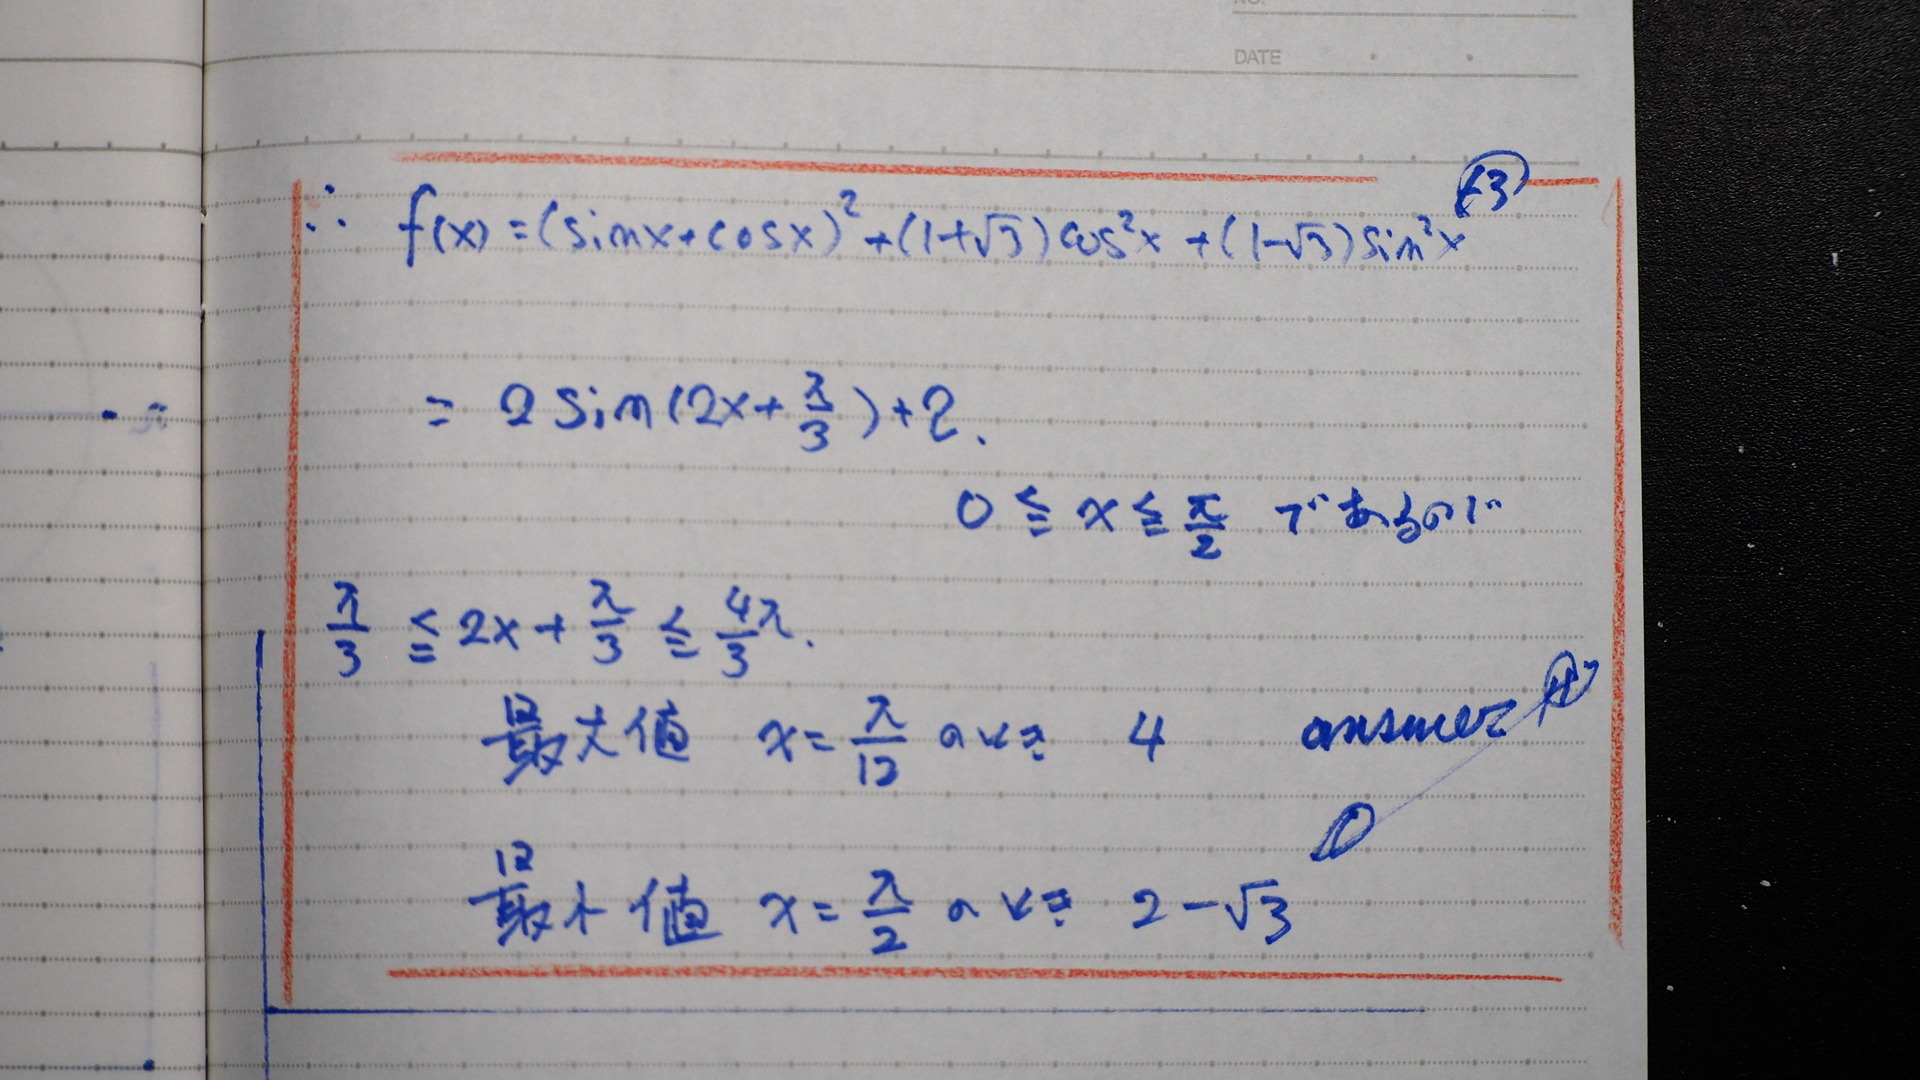 DATE
∴ f(x)=(sinx+cosx)²+(1+√3)cos²x+(1-√3)sin²x
= 2sin(2x+π/3)+2.
0≦x≦π/2 であるので
π/3≦2x+π/3≦4π/3.
最大値 x=π/12 のとき 4 answer
最小値 x=π/2 のとき 2-√3